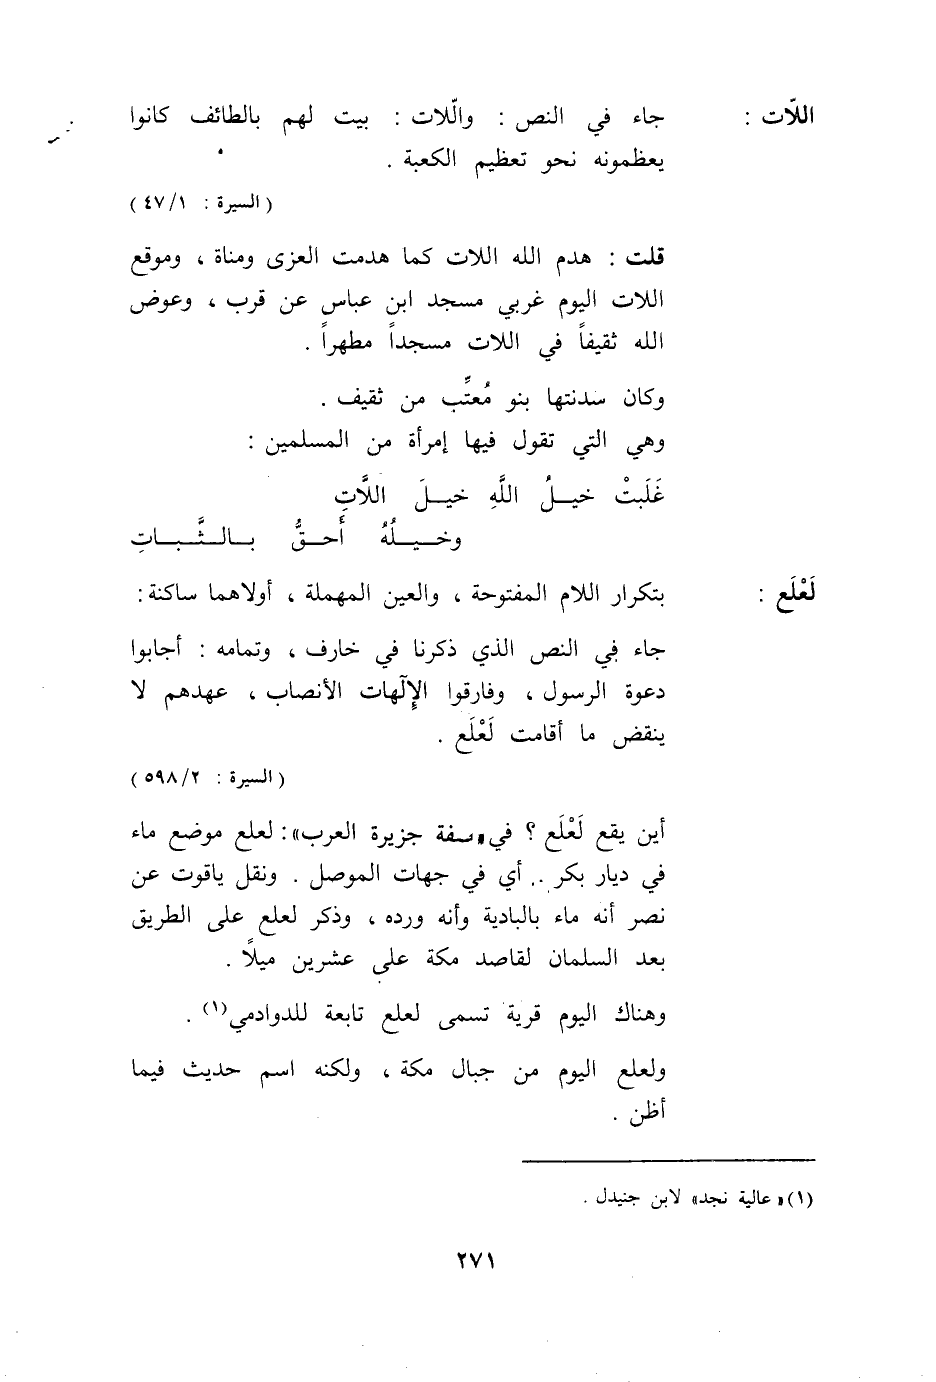 اللّات : جاء في النص : والّلات : بيت لهم بالطائف كانوا
يعظمونه نحو تعظيم الكعبة .
( السيرة : ٤٧/١ )
قلت : هدم الله اللات كما هدمت العزى ومناة ، وموقع
اللات اليوم غربي مسجد ابن عباس عن قرب ، وعوض
الله ثقيفاً في اللات مسجداً مطهراً .
وكان سدنتها بنو مُعتِّب من ثقيف .
وهي التي تقول فيها إمرأة من المسلمين :
غَلَبتْ خيـلُ اللَّهِ خيـلَ اللَّاتِ
وخـيـلُهُ أَحـقُّ بـالـثَّـبـاتِ
لَعْلَع : بتكرار اللام المفتوحة ، والعين المهملة ، أولاهما ساكنة :
جاء في النص الذي ذكرنا في خارف ، وتمامه : أجابوا
دعوة الرسول ، وفارقوا الإلٓهات الأنصاب ، عهدهم لا
ينقض ما أقامت لَعْلَع .
( السيرة : ٥٩٨/٢ )
أين يقع لَعْلَع ؟ في «صفة جزيرة العرب» : لعلع موضع ماء
في ديار بكر .. أي في جهات الموصل . ونقل ياقوت عن
نصر أنه ماء بالبادية وأنه ورده ، وذكر لعلع على الطريق
بعد السلمان لقاصد مكة على عشرين ميلاً .
وهناك اليوم قرية تسمى لعلع تابعة للدوادمي(١) .
ولعلع اليوم من جبال مكة ، ولكنه اسم حديث فيما
أظن .
(١) «عالية نجد» لابن جنيدل .
٢٧١